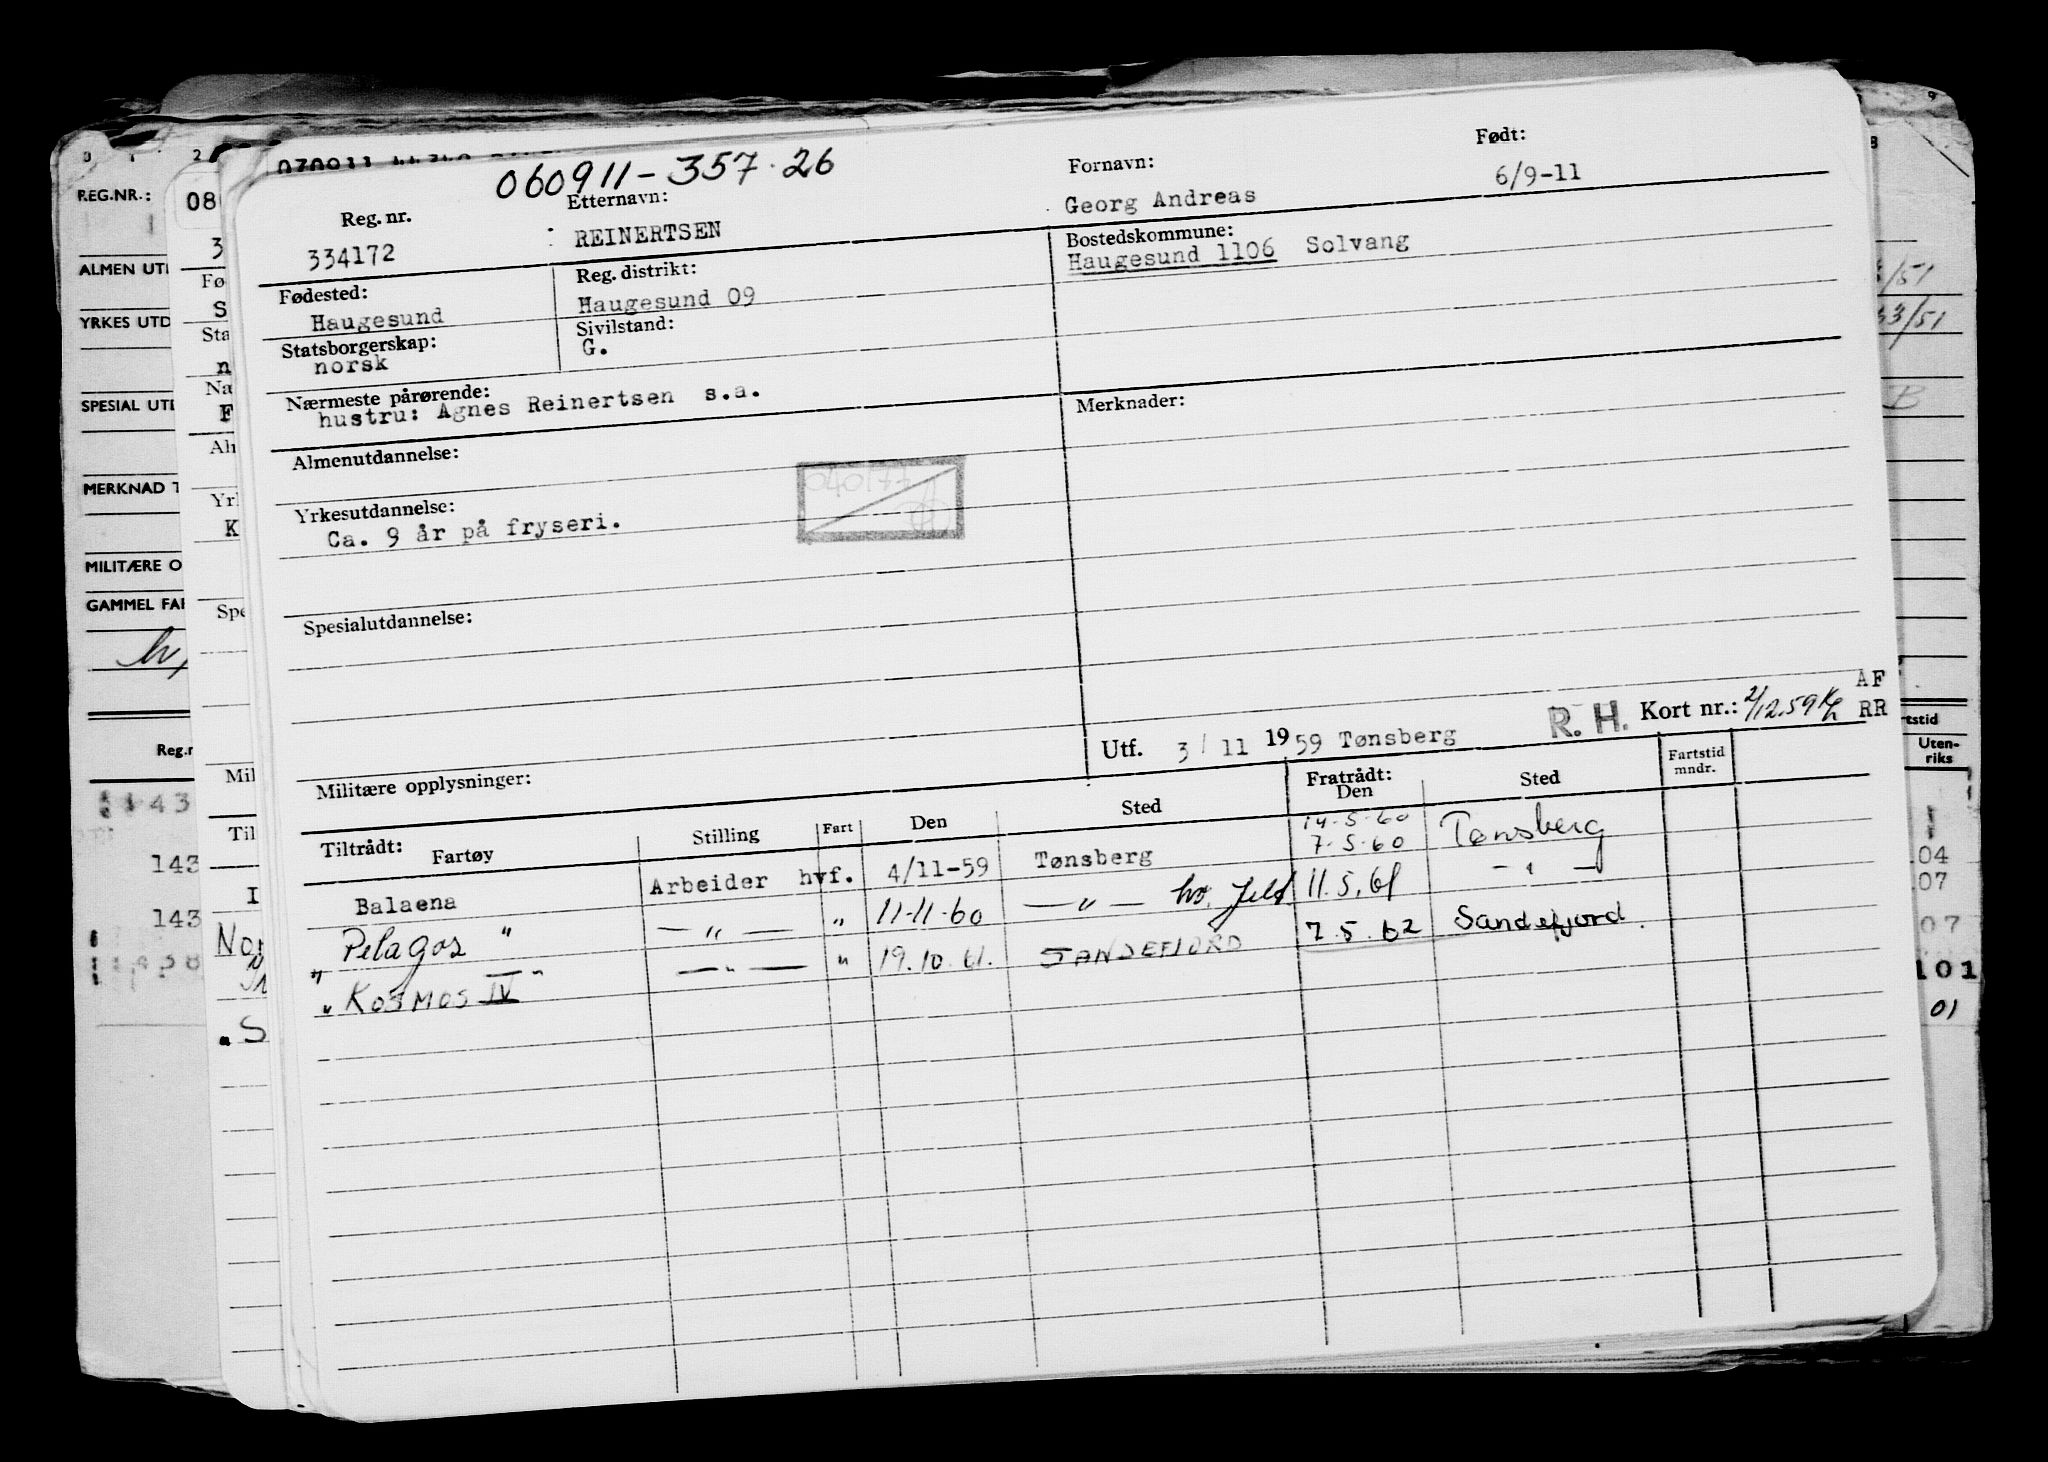 060911-357.26
Reg. nr. Etternavn: Fornavn: Født:
334172 REINERTSEN Georg Andreas 6/9-11
Fødested: Reg. distrikt: Bostedskommune:
Haugesund Haugesund 09 Haugesund 1106 Solvang
Statsborgerskap: Sivilstand:
norsk G.
Nærmeste pårørende: Merknader:
hustru: Agnes Reinertsen s.a.
Almenutdannelse:
Yrkesutdannelse:
Ca. 9 år på fryseri.
Spesialutdannelse:
AF
R. H. Kort nr.: 2/12.59 RR
Utf. 3/11 1959 Tønsberg
Militære opplysninger:
Tiltrådt: Fartøy Stilling Fart Den Sted Fratrådt: Den Sted Fartstid mndr.
14.5.60
Balaena Arbeider hvf. 4/11-59 Tønsberg 7.5.60 Tønsberg
" Pelagos " — " — " 11-11-60 — " — 11.5.61 — " —
" KOSMOS IV " — " — " 19.10.61. SANDEFJORD 7.5.62 Sandefjord.
REG.NR.:
ALMEN UTD
YRKES UTD
SPESIAL UTD
MERKNAD T
MILITÆRE O
GAMMEL FAR
Reg.n
143
143
143
Uten-
riks
04
07
07
101
01